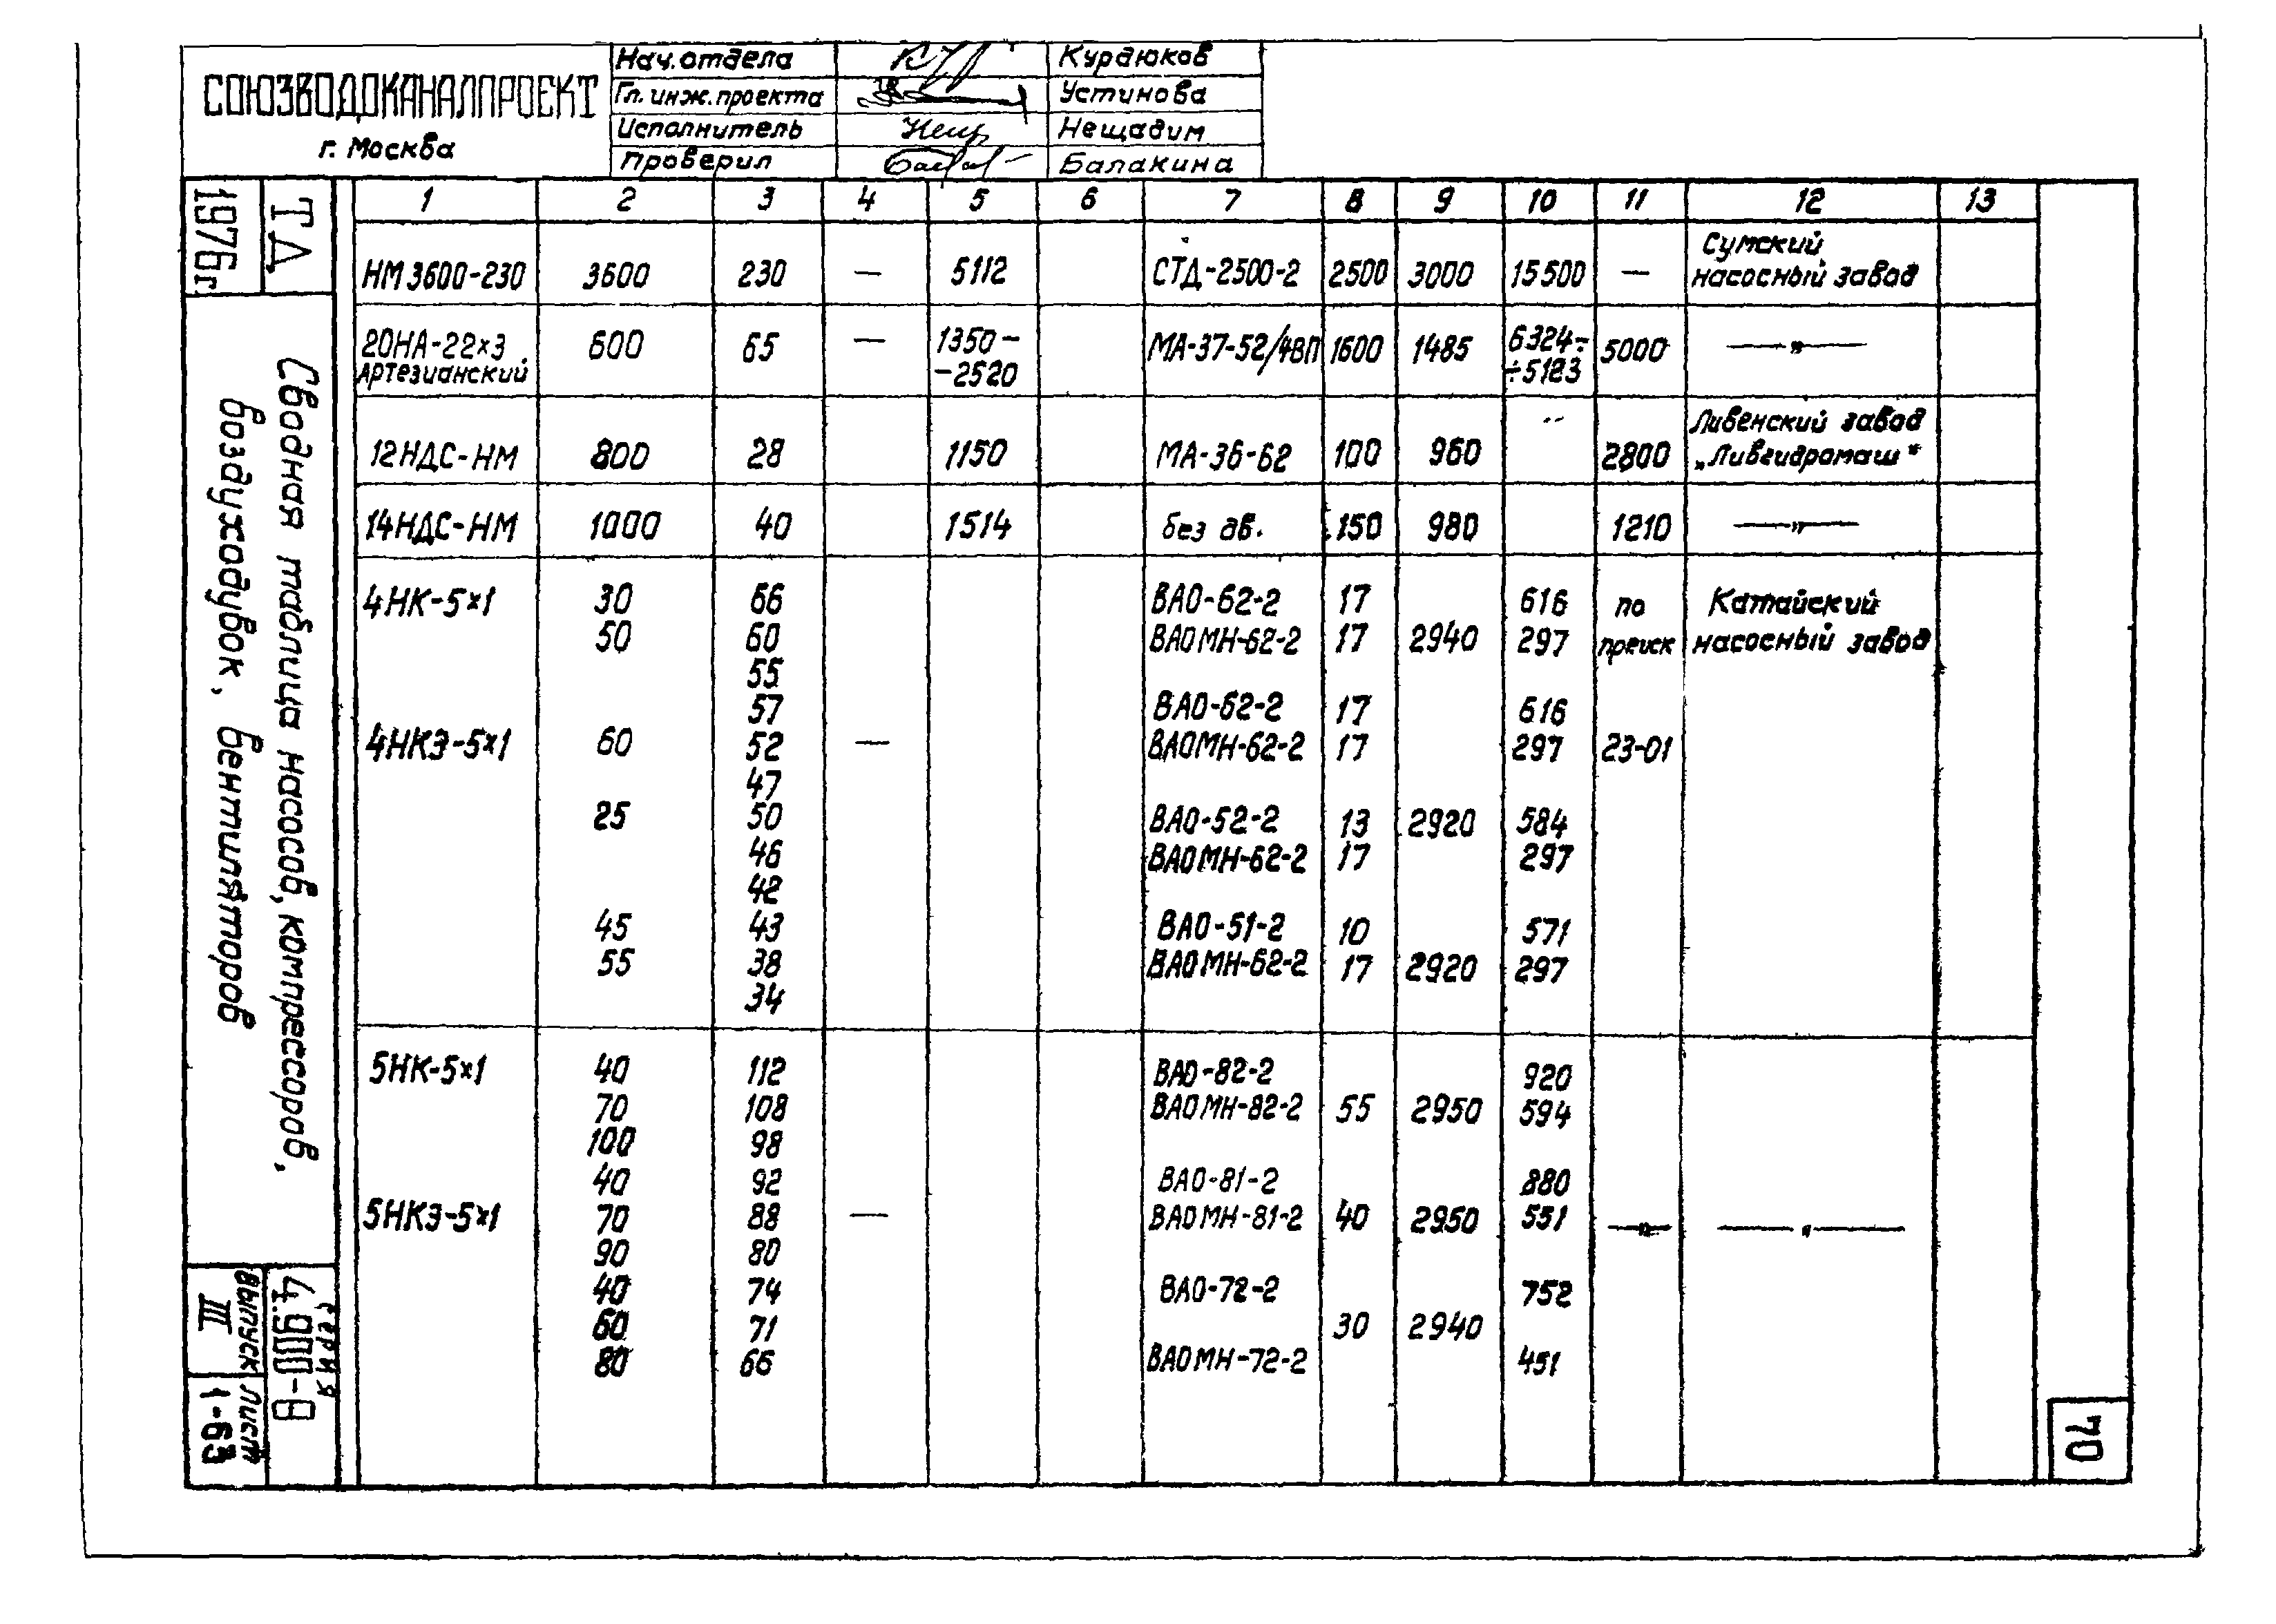 СОЮЗВОДОКАНАЛПРОЕКТ
г. Москва
Нач. отдела Курдюков
Гл. инж. проекта Устинова
Исполнитель Нещадим
Проверил Балакина
1976г
ТД
Сводная таблица насосов, компрессоров,
воздуходувок, вентиляторов
серия
4.900-8
выпуск
III
лист
1-63
1 2 3 4 5 6 7 8 9 10 11 12 13
Сумский
НМ 3600-230 3600 230 — 5112 СТД-2500-2 2500 3000 15500 — насосный завод
20НА-22×3 600 65 — 1350- МА-37-52/4ВП 1600 1485 6324÷ 5000 —„—
Артезианский -2520 ÷5123
Ливенский завод
12НДС-НМ 800 28 1150 МА-36-62 100 960 2800 „Ливгидромаш"
14НДС-НМ 1000 40 1514 без дв. 150 980 1210 —„—
4НК-5×1 30 66 ВАО-62-2 17 616 по Катайский
50 60 ВАОМН-62-2 17 2940 297 преиск насосный завод
55
57 ВАО-62-2 17 616
4НКЭ-5×1 60 52 — ВАОМН-62-2 17 297 23-01
47
25 50 ВАО-52-2 13 2920 584
46 ВАОМН-62-2 17 297
42
45 43 ВАО-51-2 10 571
55 38 ВАОМН-62-2 17 2920 297
34
5НК-5×1 40 112 ВАО-82-2 920
70 108 ВАОМН-82-2 55 2950 594
100 98
40 92 ВАО-81-2 880
5НКЭ-5×1 70 88 — ВАОМН-81-2 40 2950 551 —„— —„—
90 80
40 74 ВАО-72-2 752
60 71 30 2940
80 66 ВАОМН-72-2 451
70